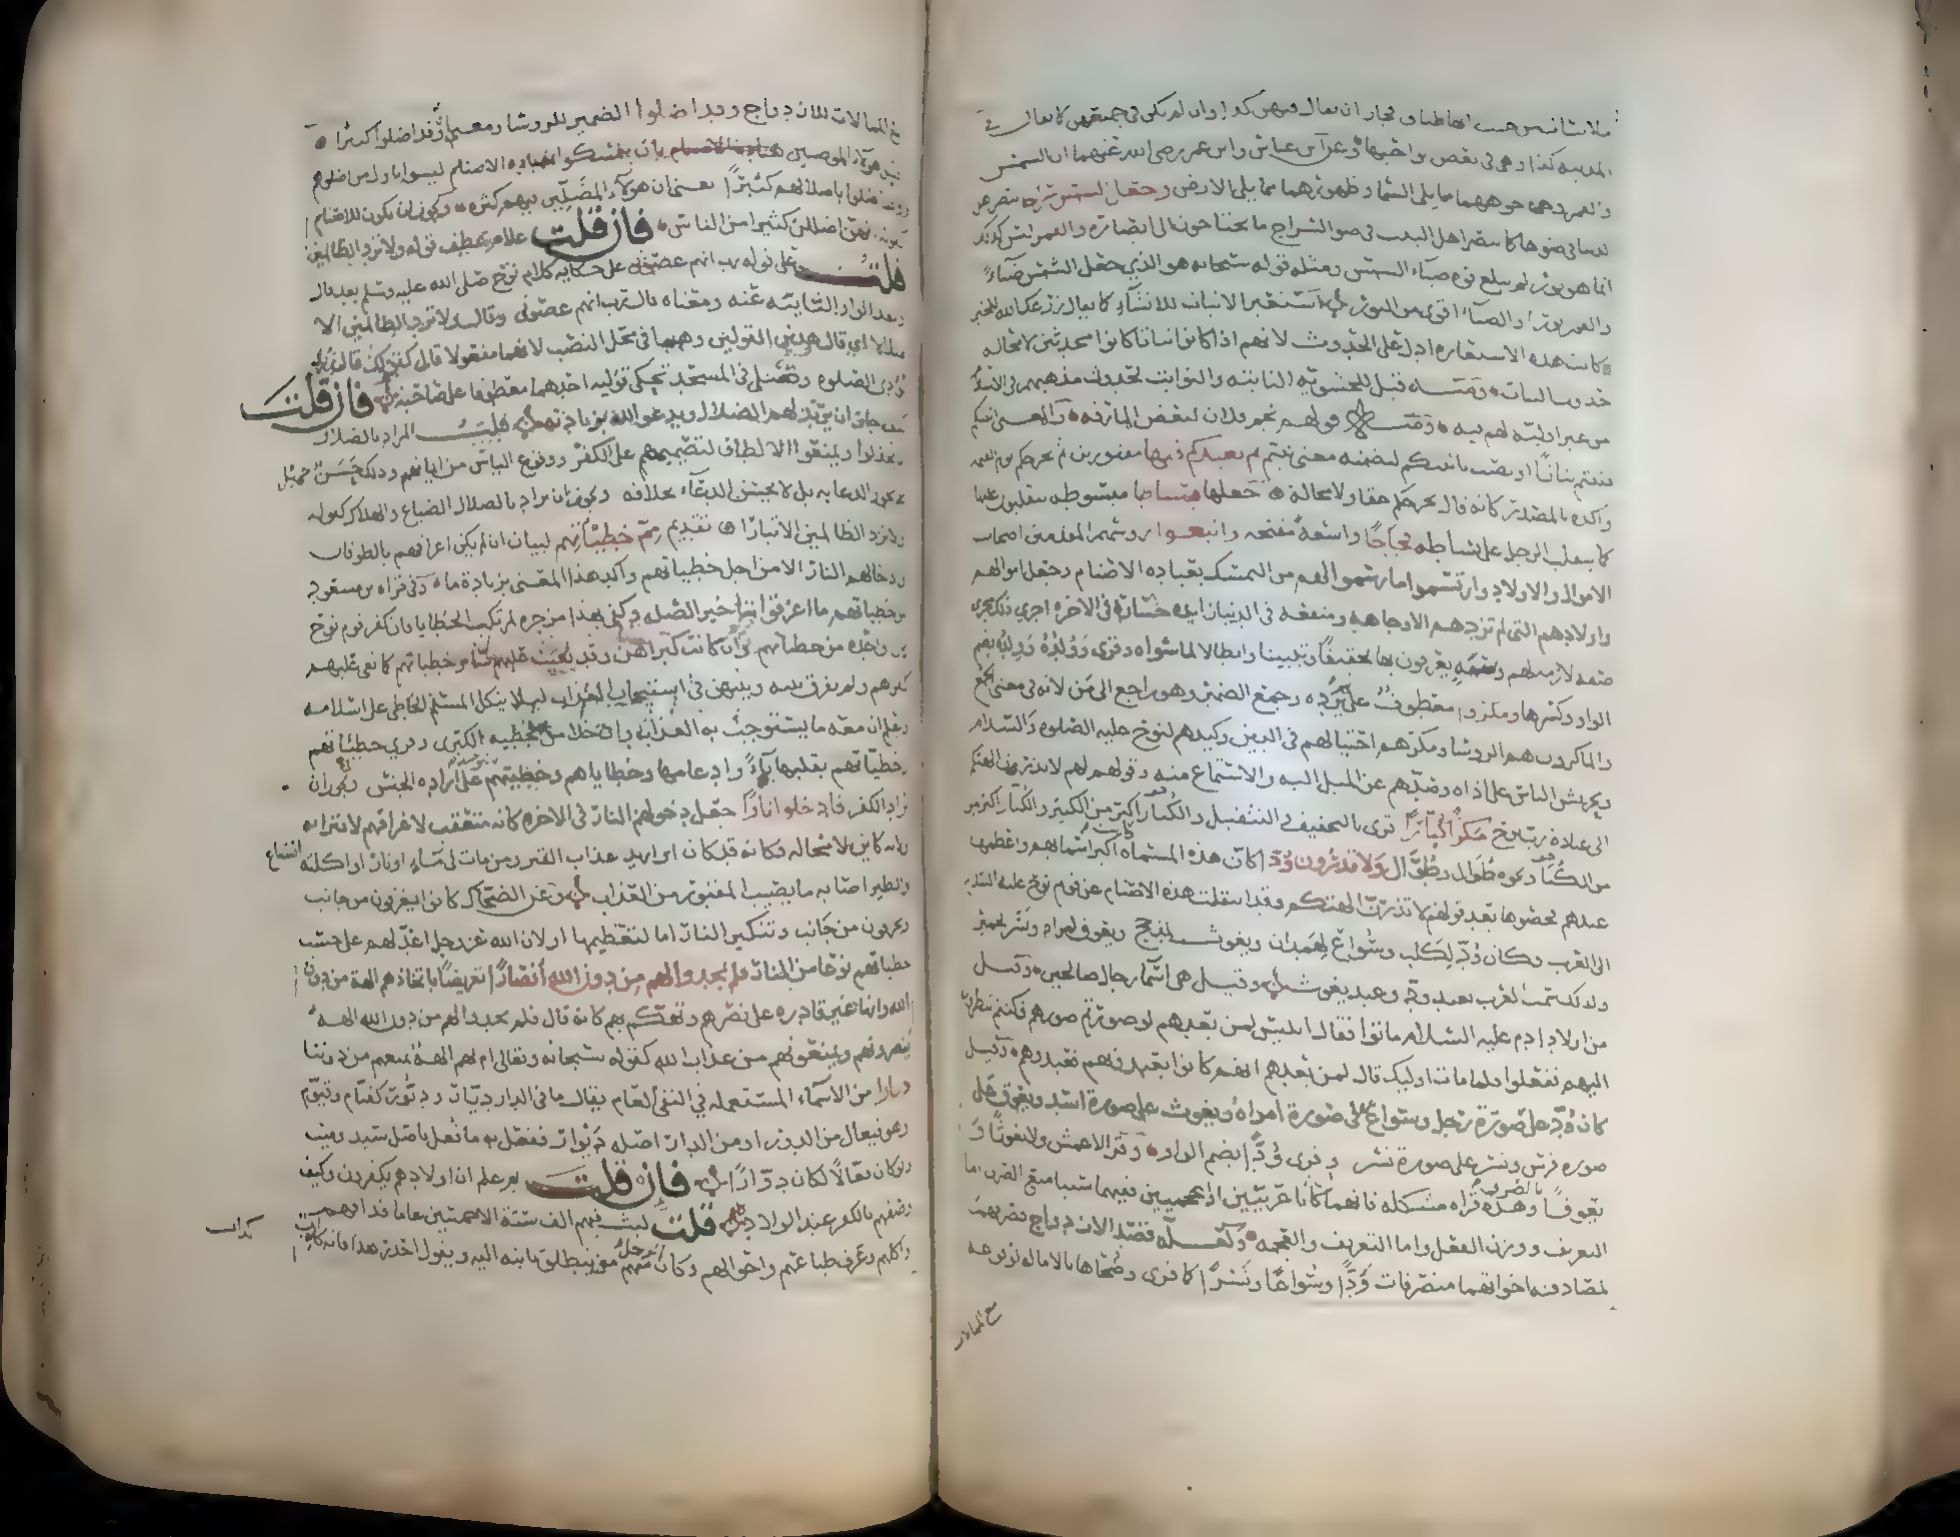 ملابسة من حيث انها طباق فجاز ان يقال فيهن كذا وان لم يكن في جميعهن كما يقال في
المدينة كذا وهي في بعض نواحيها وعن ابن عباس وابن عمر رضي الله عنهما ان الشمس
والقمر وجوههما مما يلي السماء وظهورهما مما يلي الارض وجعل الشمس سراجا يبصر اهل
الدنيا في ضوءها كما يبصر اهل البيت في ضوء السراج ما يحتاجون الى ابصاره والقمر ليس كذلك
انما هو نور لم يبلغ قوة ضياء الشمس ومثله قوله سبحانه هو الذي جعل الشمس ضياء
والقمر نورا والضياء اقوى من النور استعير الانبات للانشاء كما يقال زرعك الله للخير
كانت هذه الاستعارة ادل على الحدوث لانهم اذا كانوا نباتا كانوا محدثين لا محالة
حدوث النبات ومنه قيل للحشوية النابتة والنوابت لحدوث مذهبهم في الاسلام
من غير اولية لهم فيه ومنه قولهم نجم فلان لبعض المارقة والمعنى انبتكم
فنبتم نباتا او نصب بانبتكم لتضمنه معنى نبتم ثم يعيدكم فيها مقبورين ثم يخرجكم يوم القيمة
واكده بالمصدر كانه قال يخرجكم حقا ولا محالة جعلها بساطا مبسوطة تتقلبون عليها
كما يتقلب الرجل على بساطه فجاجا واسعة منفجة واتبعوا رؤسهم المقدمين اصحاب
الاموال والاولاد وارتسموا ما رسموا لهم من التمسك بعبادة الاصنام وجعل اموالهم
واولادهم التي لم تزدهم الا وجاهة ومنفعة في الدنيا زايدة خسارة في الاخرة اجرى ذلك مجرى
صفة لازمة لهم وسمة يعرفون بها تحقيقا وتثبيتا وابطالا لما سواه وقرئ وولده وولده بضم
الواو وكسرها ومكروا معطوف على لم يزده وجمع الضمير وهو راجع الى من لانه في معنى الجمع
والماكرون هم الرؤسا ومكرهم احتيالهم في الدين وكيدهم لنوح عليه الصلوة والسلام
وتحريش الناس على اذاه وصدهم عن الميل اليه والاستماع منه وقولهم لهم لا تذرن الهتكم
الى عبادة رب نوح مكرا كبارا قرئ بالتخفيف والتثقيل والكبار اكبر من الكبير والكبار اكبر من
من الكبار ونحوه طوال وطوال ولا تذرن ودا كان هذه المسماة اكبر اصنامهم واعظمها
عندهم فخصوها بعد قولهم لا تذرن الهتكم وقد انتقلت هذه الاصنام عن قوم نوح عليه السلام
الى العرب وكان ود لكلب وسواع لهمدان ويغوث لمذحج ويعوق لمراد ونسر لحمير
ولذلك سمت العرب بعبد ود وعبد يغوث وقيل هي اسماء رجال صالحين وقيل
من اولاد ادم عليه السلام ماتوا فقال ابليس لمن بعدهم لو صورتم صورهم فكنتم تنظرون
اليهم ففعلوا فلما مات اوليك قال لمن بعدهم انهم كانوا يعبدونهم فعبدوهم وقيل
كان ود على صورة رجل وسواع على صورة امراة ويغوث على صورة اسد ويعوق على
صورة فرس ونسر على صورة نسر وقرئ ودا بضم الواو وقرا الاعمش ولا يغوثا و
يعوقا بالصرف وهذه قراه مشكلة لانهما ان كانا عربيين او عجميين ففيهما سببا منع الصرف اما
التعريف ووزن الفعل واما التعريف والعجمة ولعله قصد الازدواج فصرفهما
لمصادفته اخواتهما منصرفات ودا وسواعا ونسرا كما قرئ وضحاها بالامالة لوقوعه
مع الممالات
مع الممالات للازدواج وقد اضلوا الضمير للرؤسا ومعناه وقد اضلوا كثيرا
قبل هؤلاء الموصين بان يتمسكوا بعبادة الاصنام ليسوا باول من اضلوهم
او وقد اضلوا باضلالهم كثيرا يعني ان هؤلاء المضلين فيهم كثرة ويجوز ان يكون للاصنام
كقوله انهن اضللن كثيرا من الناس فان قلت علام عطف قوله ولا تزد الظالمين
قلت على قوله رب انهم عصوني على حكاية كلام نوح صلى الله عليه وسلم بعد قال
وبعد الواو النايبة عنه ومعناه قال رب انهم عصوني وقال لا تزد الظالمين الا
ضلالا اي قال هذين القولين وهما في محل النصب لانهما مفعولا قال كقولك قال زيد
نودي للصلوة وصل في المسجد تحكي قوليه احدهما معطوفا على صاحبه فان قلت
كيف جاز ان يريد لهم الضلال ويدعو الله بزيادته قلت المراد بالضلال
ان يخذلوا ويمنعوا الالطاف لتصميمهم على الكفر ووقوع الياس من ايمانهم وذلك حسن جميل
يجوز الدعا به بل لا يحسن الدعاء بخلافه ويجوز ان يراد بالضلال الضياع والهلاك كقوله
ولا تزد الظالمين الا تبارا تقديم مما خطيئاتهم لبيان ان لم يكن اغراقهم بالطوفان
وادخالهم النار الا من اجل خطياتهم واكد هذا المعنى بزيادة ما وفي قراه بن مسعود
من خطياتهم ما اغرقوا بتاخير الصلة وكفى بهذا مزجرة لمرتكب الخطايا فان كفر قوم نوح
كان واحدة من خطياتهم وان كانت كبراهن وقد نعيت عليهم سائر خطياتهم كما نعى عليهم
كفرهم ولم يفرق بينه وبينهن في استيجاب العذاب ليلا يتكل المسلم الخاطي على اسلامه
ويعلم ان معه ما يستوجب به العذاب وان خلا من الخطية الكبرى وقرئ خطيئاتهم
وخطياتهم بقلبها ياء وادغامها وخطاياهم وخطيئتهم بالتوحيد على ارادة الجنس ويجوز ان
يراد الكفر فادخلوا نارا جعل دخولهم النار في الاخرة كانه متعقب لاغراقهم لاقترابه
ولانه كاين لا محالة فكانه قد كان او اريد عذاب القبر ومن مات في ماء او نار او اكلته السباع
والطير اصابه ما يصيب المقبور من العذاب وعن الضحاك كانوا يغرقون من جانب
ويحرقون من جانب وتنكير النار اما لتعظيمها او لان الله عز وجل اعد لهم على حسب
خطياتهم نوعا من النار فلم يجدوا لهم من دون الله انصارا تعريض باتخاذهم الهة من دون
الله وانها غير قادرة على نصرهم وتهكم بهم كانه قال فلم يجدوا لهم من دون الله الهة
ينصرونهم ويمنعونهم من عذاب الله كقوله سبحانه وتعالى ام لهم الهة تمنعهم من دوننا
ديارا من الاسماء المستعملة في النفي العام يقال ما في الدار ديار وديور كقيام وقيوم
وهو فيعال من الدور او من الدار اصله ديوار ففعل به ما فعل باصل سيد وميت
ولو كان فعالا لكان دوارا فان قلت بم علم ان اولادهم يكفرون وكيف
وصفهم بالكفر عند الولادة قلت لبث فيهم الف سنة الا خمسين عاما فذاقهم
واكلهم وعرف طباعهم واحوالهم وكان الرجل منهم ينطلق بابنه اليه ويقول احذر هذا فانه كذاب
كذاب